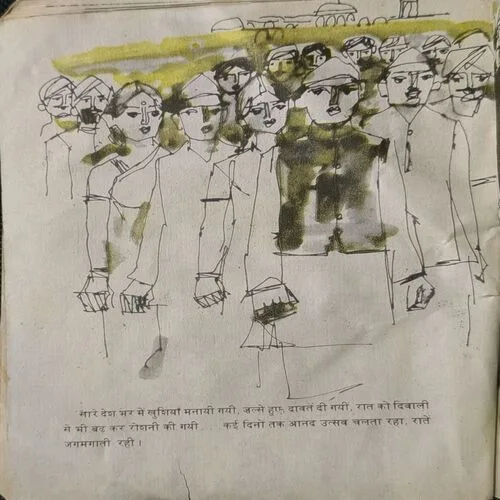 सारे देश भर में खुशियाँ मनायी गयी, जल्से हुए, दावतें दी गयीं, रात को दिवाली
से भी बढ़ कर रोशनी की गयी . . . कई दिनो तक आनद उत्सव चलता रहा, रातें
जगमगाती रही ।